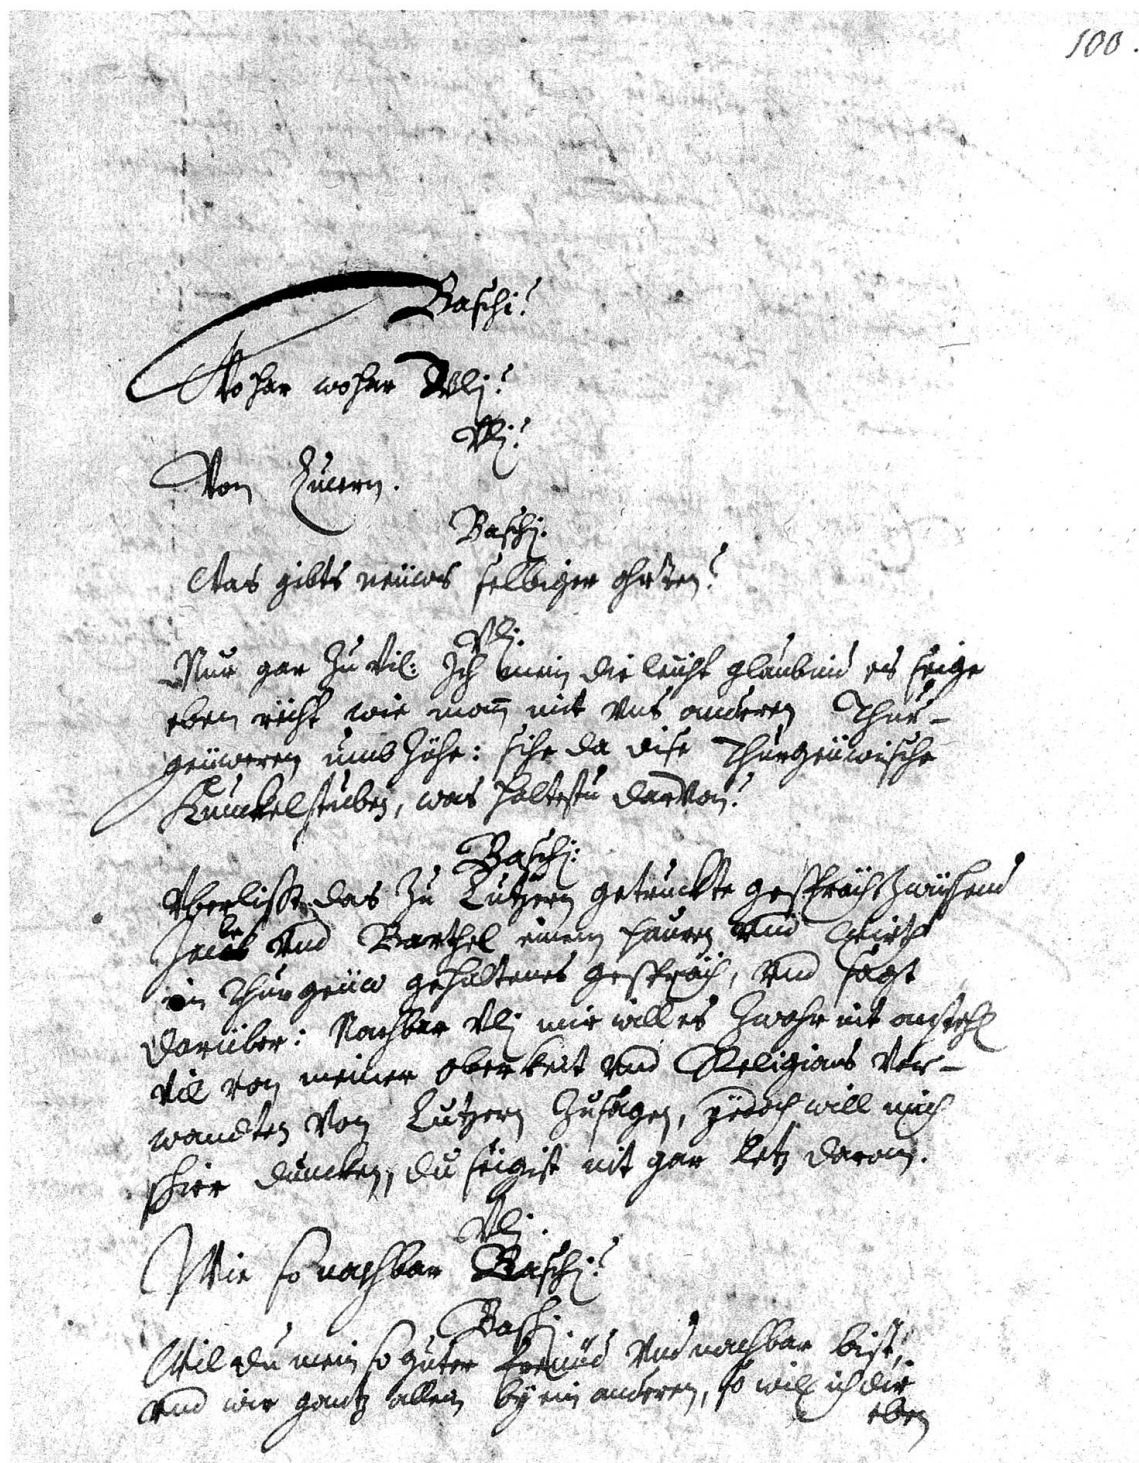 100.
Baschi?
Wohar wohar Vlj?
Vlj?
Von Lucern.
Baschj.
Was gibts neüws selbiger ohrten?
Vlj.
Nur gar zu vil: Ich mein die leüth glaubind es seige
eben recht wie man mit vns anderen Thur-
geüweren umbzühe: sihe da dise Thurgeüwische
Kunckelstuben, was haltestu darvon?
Baschj:
Vberlisst das zu Lutzern getruckte gespräch zwüschend
Jacob vnd Barthel einem pauren vnd wirth
im Thurgeüw gehaltenes gespräch, vnd sagt
darüber: Nachbar Vlj mir will es zwahr nit anstehe
vil von meiner oberkeit vnd Religions ver-
wandten von Lutzern zusagen, yedoch will mich
schier duncken, du seigist nit gar letz daran.
Vlj.
Wie so nachbar Baschj?
Baschj.
Wil du mein so guter freünd vnd nachbar bist,
vnd wir gantz allein by ein anderen, so will ich dir
eben